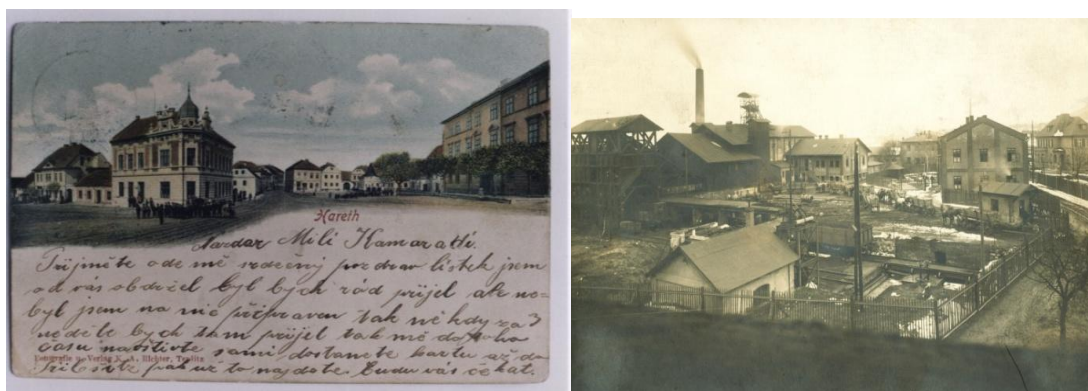 Hareth
Nazdar Milí Kamarátí.
Přijměte ode mě srdečný pozdrav lístek jsem
od vás obdržel byl bych rád přijel ale ne-
byl jsem na mě připraven tak někdy za 3
neděle bych tam přijel tak mě do toho
času navštivte sami dostanete kartu až do
pak už to najdete. Budu vás čekat.
Fotografie u. Verlag K. A. Richter, Teplitz